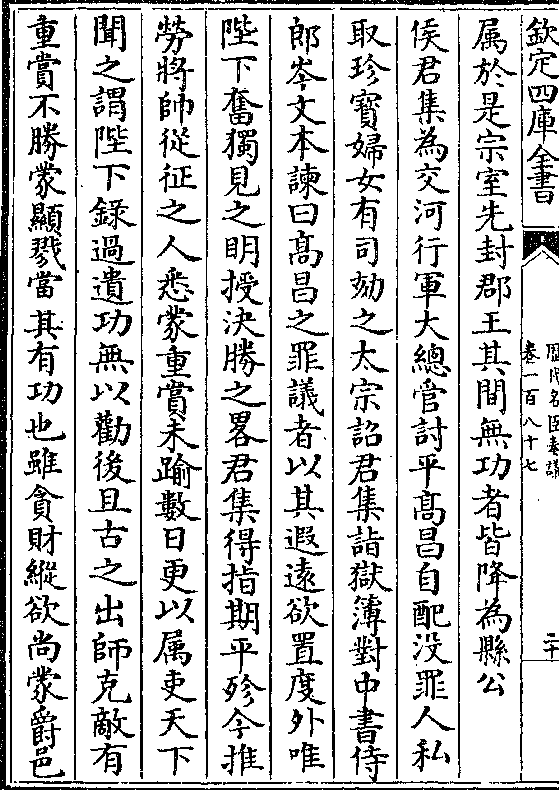 欽定四庫全書
歷代名臣奏議
卷一百八十七
二十
属於是宗室先封郡王其間無功者皆降為縣公
侯君集為交河行軍大總管討平髙昌自配没罪人私
取珍寳婦女有司劾之太宗詔君集詣獄簿對中書侍
郎岑文本諫曰髙昌之罪議者以其遐遠欲置度外唯
陛下奮獨見之明授決勝之畧君集得指期平殄今推
勞將帥從征之人悉蒙重賞未踰數日更以属吏天下
聞之謂陛下錄過遺功無以勸後且古之出師克敵有
重賞不勝蒙顯戮當其有功也雖貪財縱欲尚蒙爵邑